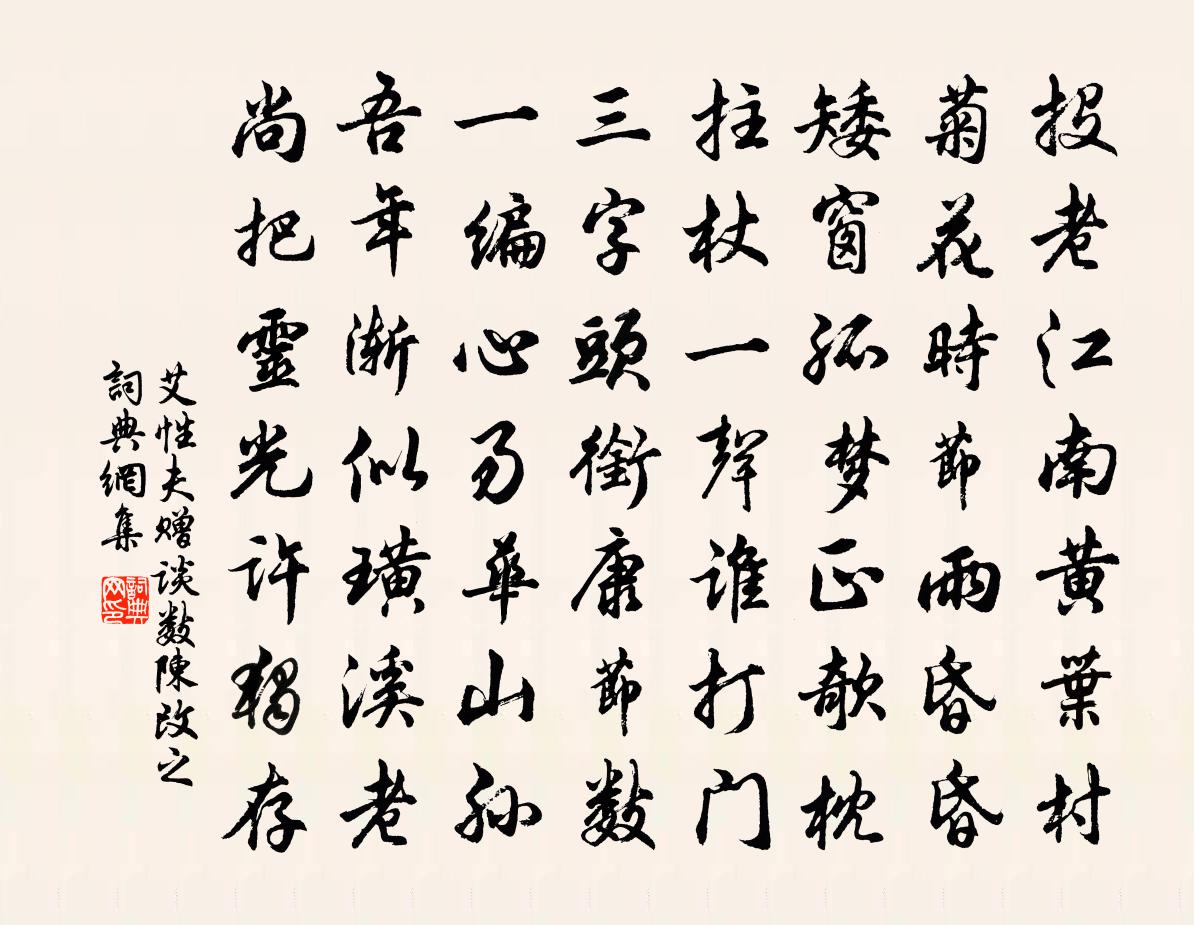 投老江南黄葉村
菊花時節雨昏昏
矮窗孤梦正欹枕
拄杖一聲誰打门
三字頭銜康節數
一编心易華山孙
吾年渐似璜溪老
尚把靈光許獨存
艾性夫赠谈数陳改之
詞典網集
詞典网印